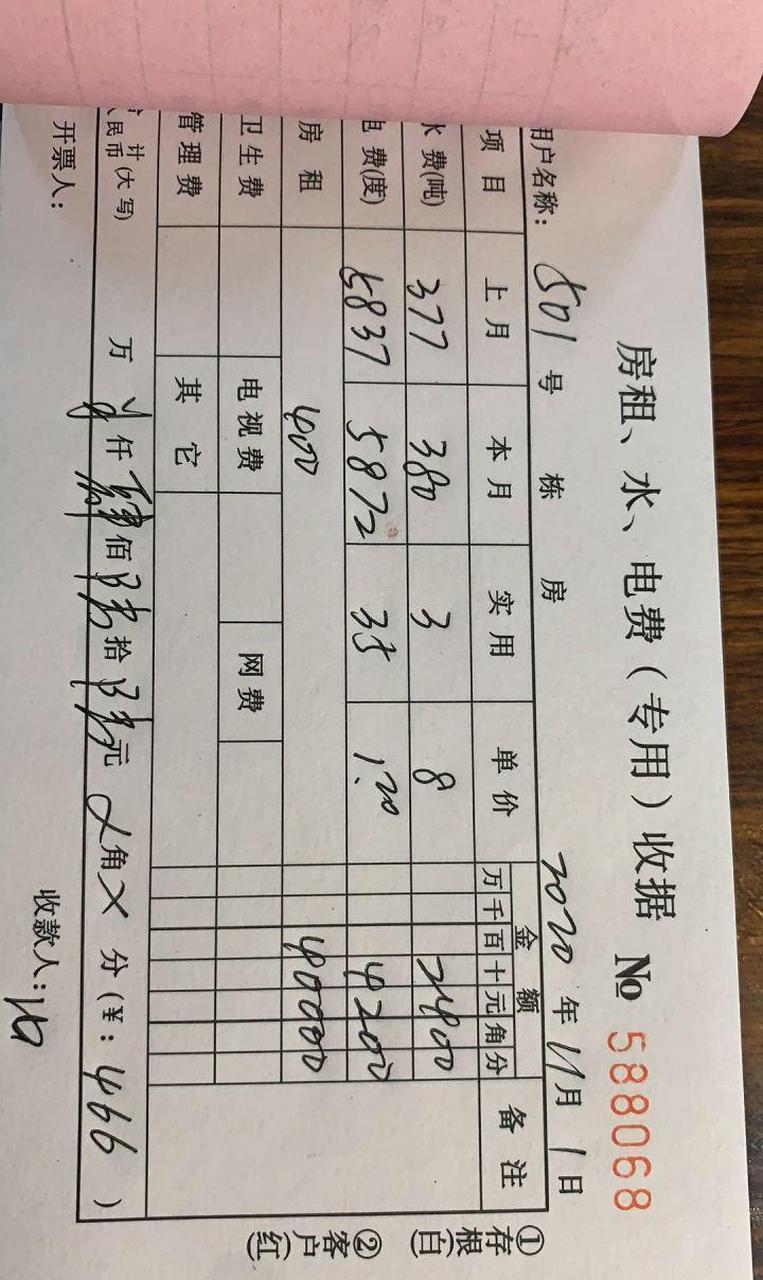 房租、水、电费(专用)收据 № 588068
用户名称: 501 号 栋 房 2020 年 11月 1 日
项目 上月 本月 实用 单价 金额 备注
万 千 百 十 元 角 分
水费(吨) 377 380 3 8 2400
电费(度) 5837 5872 35 1.20 4200
房租 400 40000
卫生费 电视费 网费
管理费 其它
合计(大写)人民币 万 仟 肆佰 陆拾 陆元 角 X 分(¥: 466 )
开票人: 收款人:
①存根(白) ②客户(红)